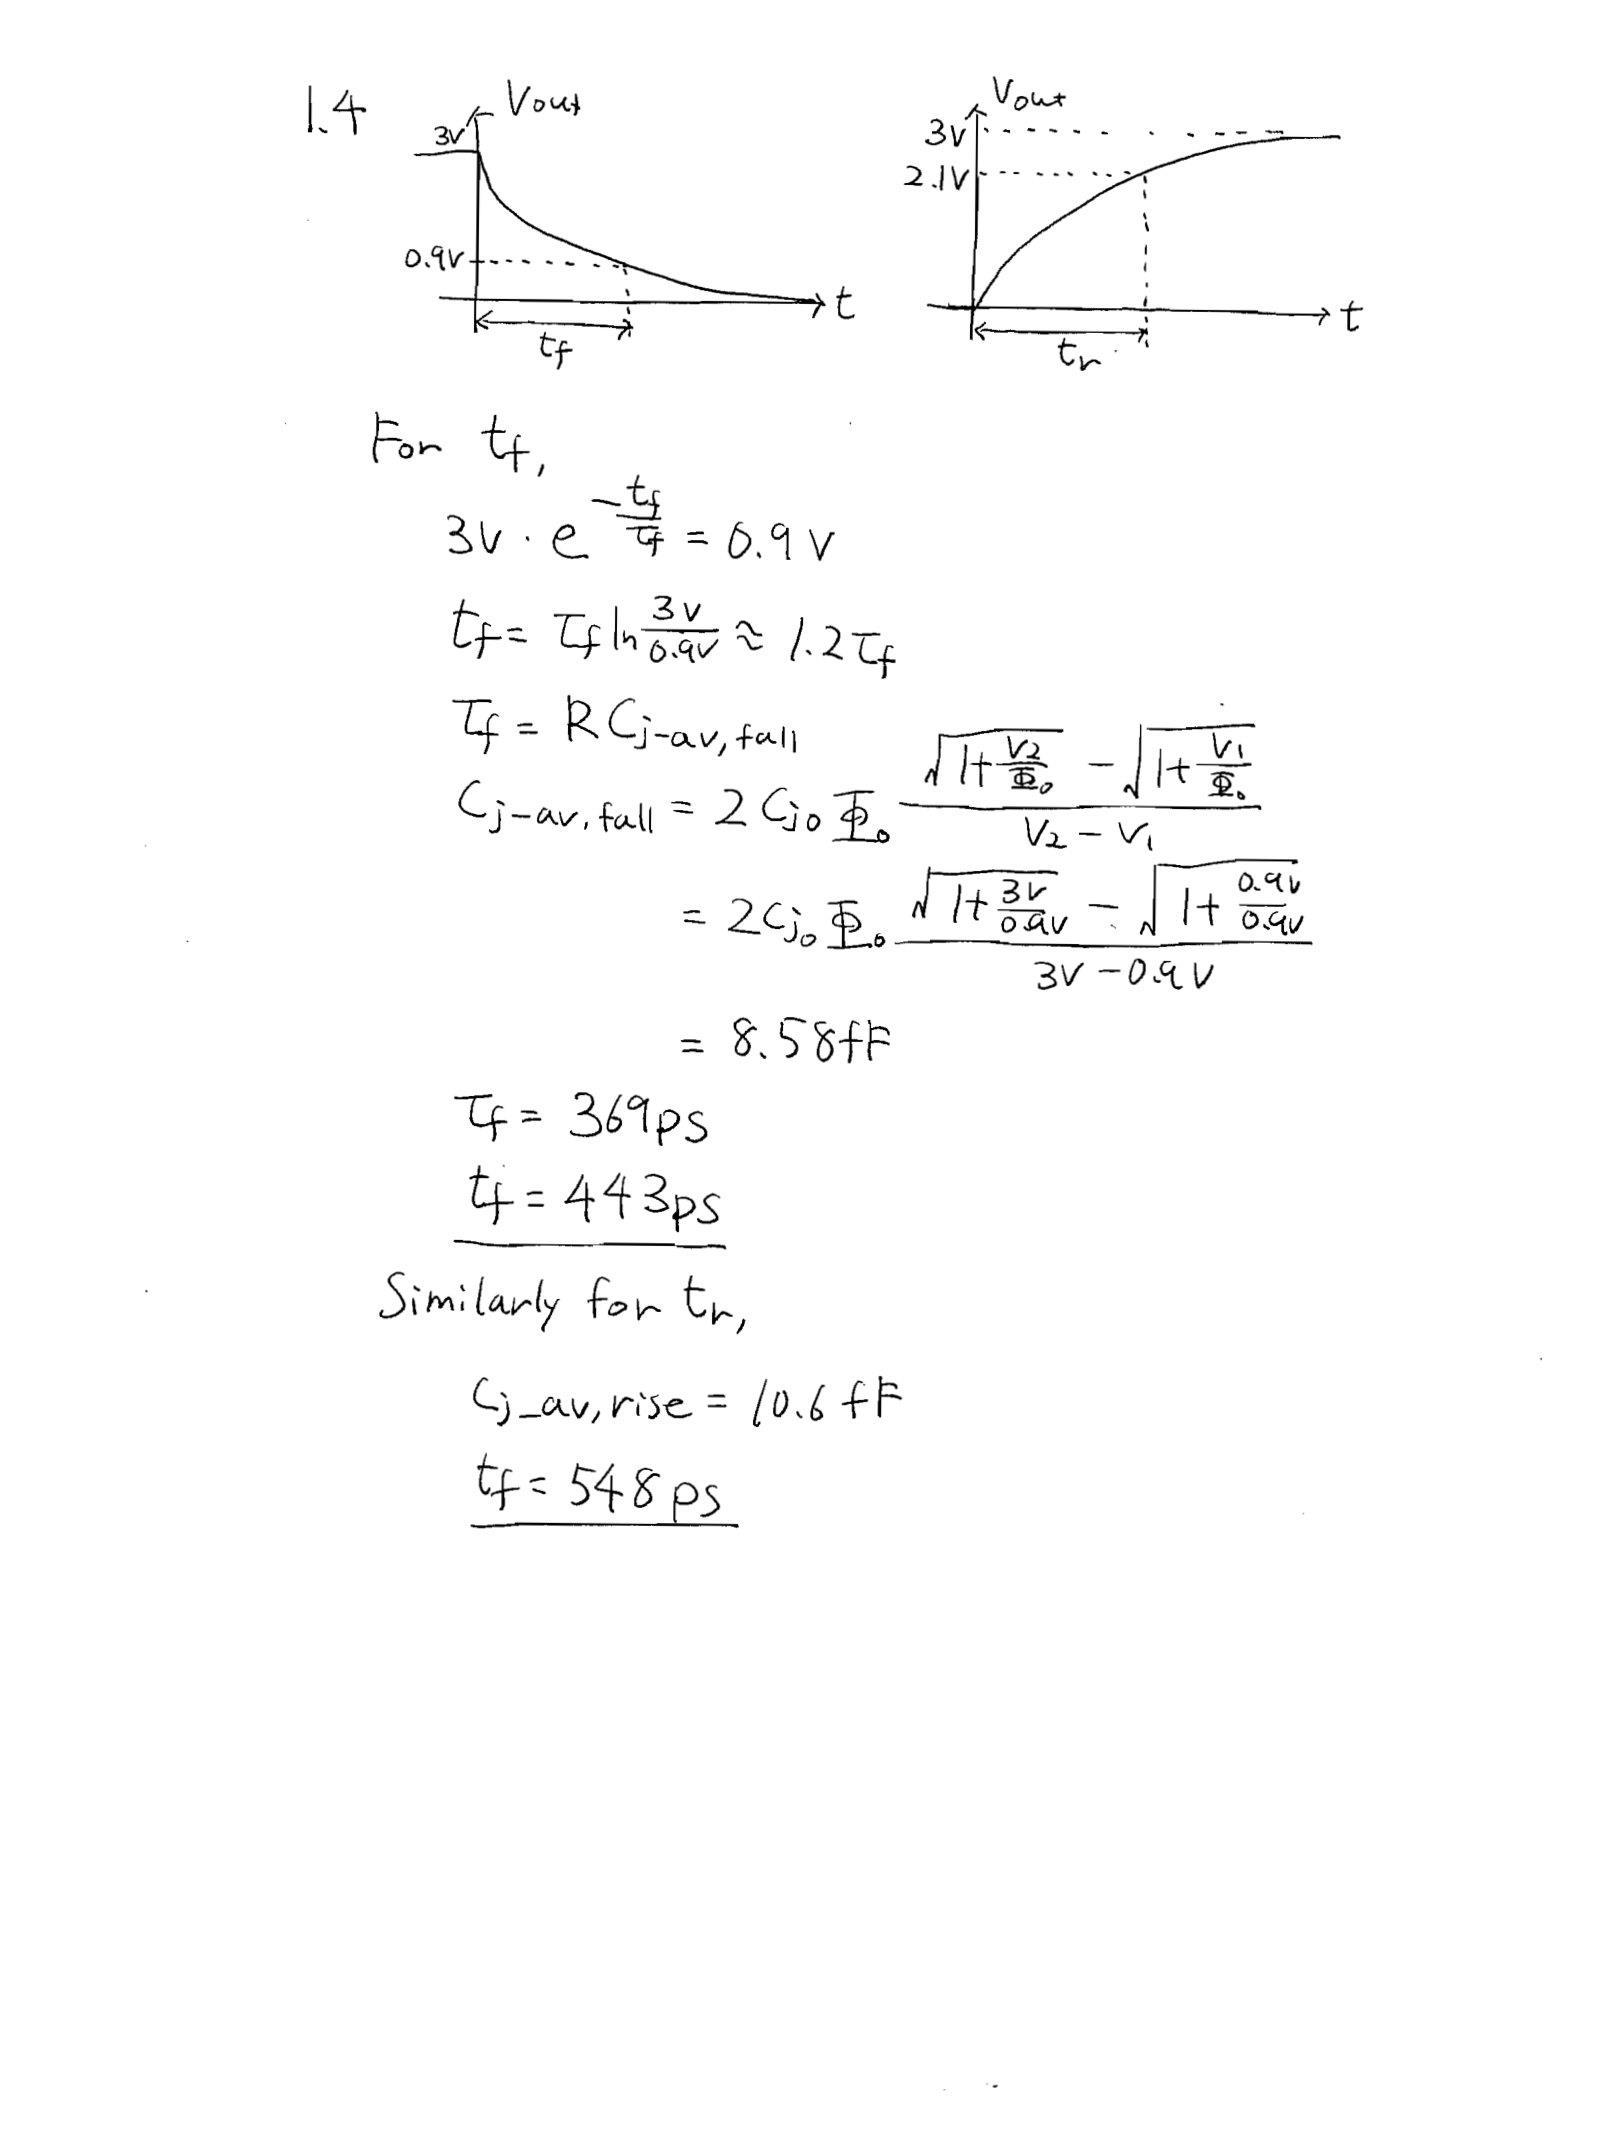 1.4
Vout
3V
0.9V
t
tf
Vout
3V
2.1V
t
tr
For tf,
3V · e^(-tf/τf) = 0.9V
tf = τf ln 3V/0.9V ≈ 1.2τf
τf = R Cj-av, fall
Cj-av, fall = 2 Cj0 Φ0 (√(1+V2/Φ0) - √(1+V1/Φ0)) / (V2 - V1)
= 2Cj0 Φ0 (√(1+3V/0.9V) - √(1+0.9V/0.9V)) / (3V - 0.9V)
= 8.58fF
τf = 369ps
tf = 443ps
Similarly for tr,
Cj-av, rise = 10.6 fF
tf = 548ps